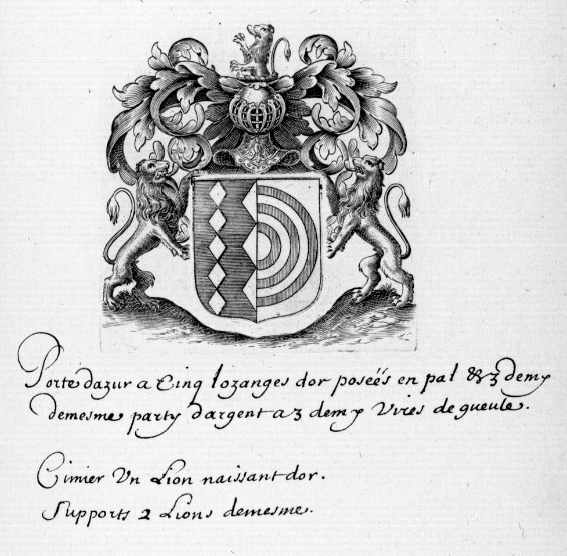 Porte dazur a Cinq lozanges dor poseés en pal & 3 demy
demesme party dargent a 3 demy Vires de gueule.
Cimier Vn Lion naissant dor.
Supports 2 Lions demesme.